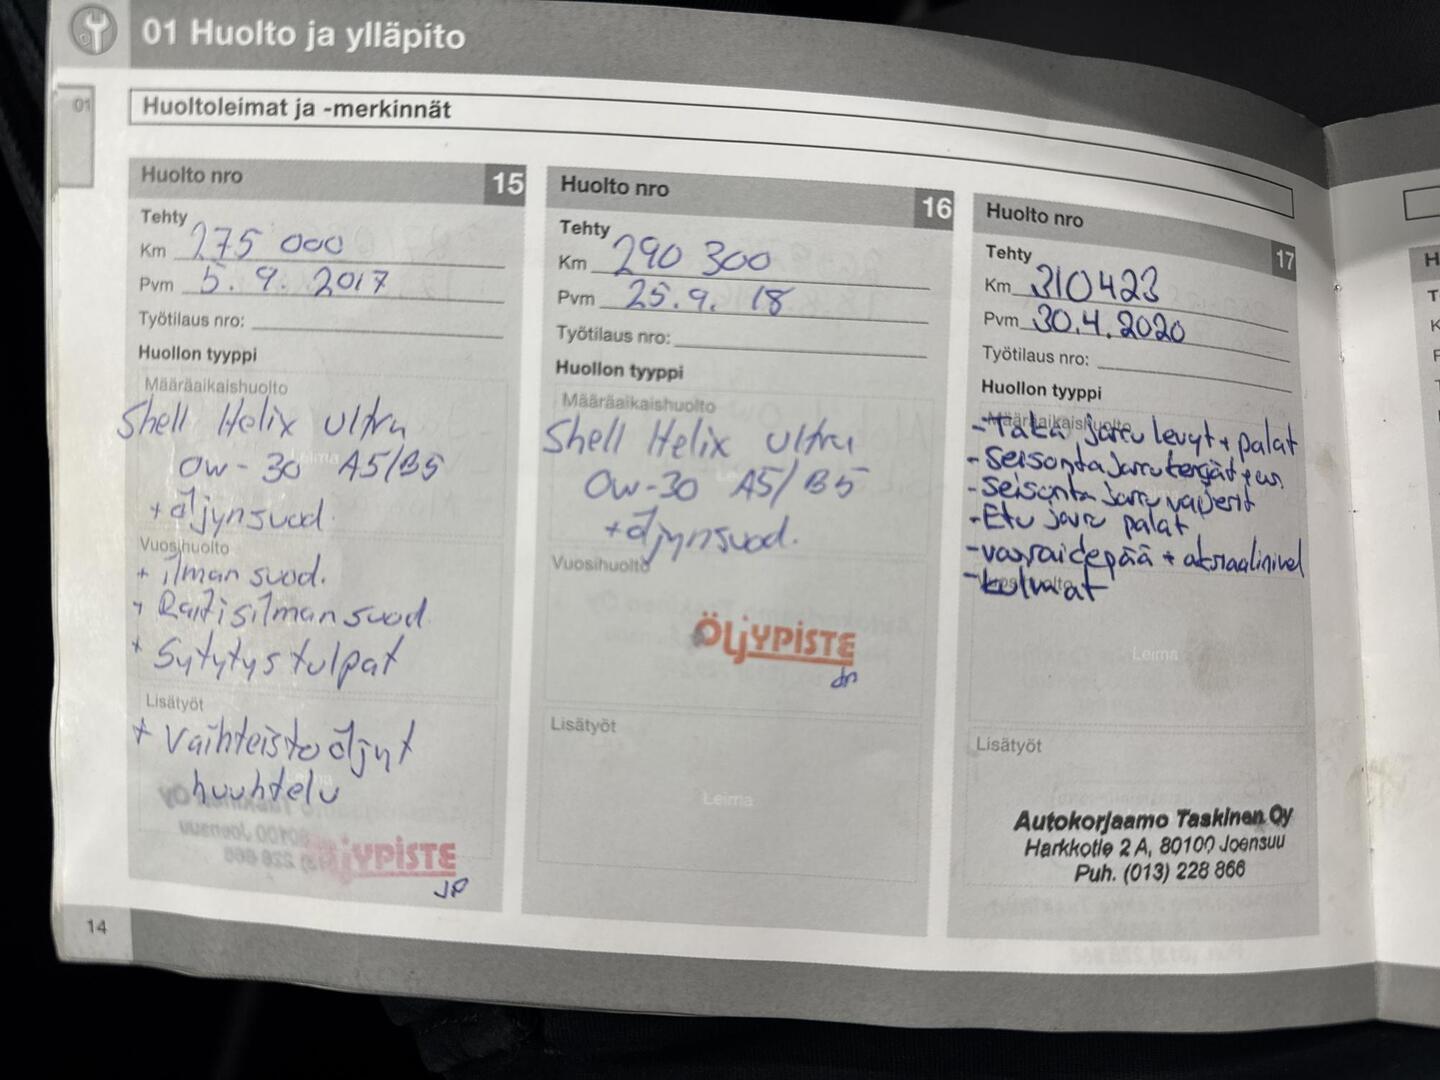 01 Huolto ja ylläpito
01
Huoltoleimat ja -merkinnät
Huolto nro 15
Tehty
Km 275 000
Pvm 5.9.2017
Työtilaus nro:
Huollon tyyppi
Määräaikaishuolto
Shell Helix ultra
0w-30 A5/B5
+ öljynsuod.
Vuosihuolto
+ ilman suod.
+ Raitisilman suod
+ Sytytystulpat
Lisätyöt
+ Vaihteistoöljyt
huuhtelu
ÖljYPiSTE
JP
14
Huolto nro 16
Tehty
Km 290 300
Pvm 25.9. 18
Työtilaus nro:
Huollon tyyppi
Määräaikaishuolto
Shell Helix ultra
0w-30 A5/B5
+ öljynsuod.
Vuosihuolto
ÖljYPiSTE
Lisätyöt
Leima
Huolto nro 17
Tehty
Km 310423
Pvm 30.4.2020
Työtilaus nro:
Huollon tyyppi
Määräaikaishuolto
- Taka jarru levyt + palat
- Seisonta jarru kengät
- Seisonta jarru vaijerit
- Etu jarru palat
- vas raidepää + aksiaalinivel
- kulmat
Vuosihuolto
Leima
Lisätyöt
Autokorjaamo Taskinen Oy
Harkkotie 2 A, 80100 Joensuu
Puh. (013) 228 866